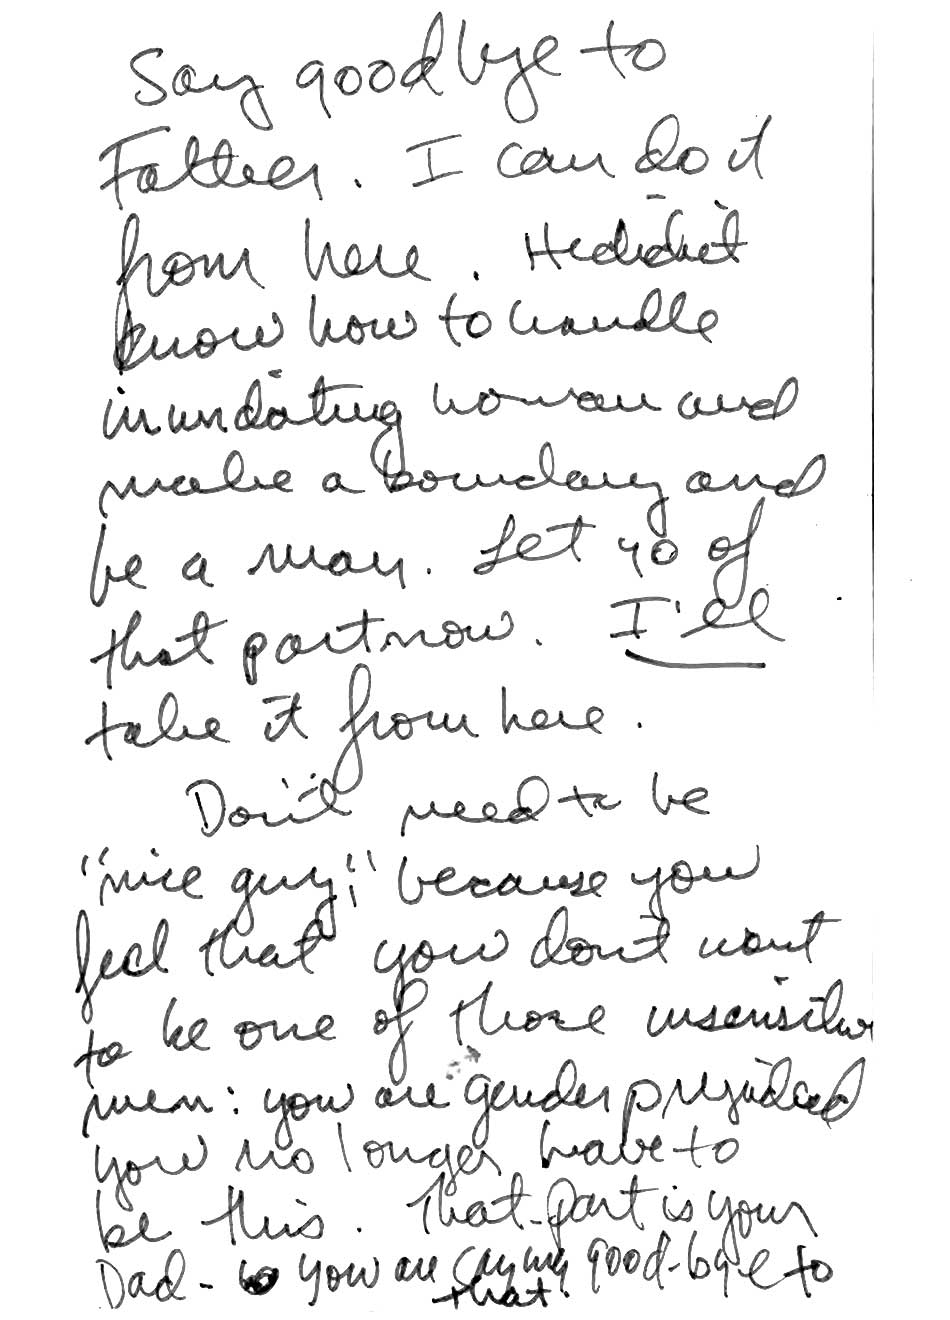 Say goodbye to
Father. I can do it
from here. He didn't
know how to handle
inundating woman and
make a boundary and
be a man. Let go of
that part now. I'll
take it from here.
Don't need to be
"nice guy;" because you
feel that you don't want
to be one of those insensitive
men: you are gender prejudiced
you no longer have to
be this. That part is your
Dad - you are saying good-bye to
that.